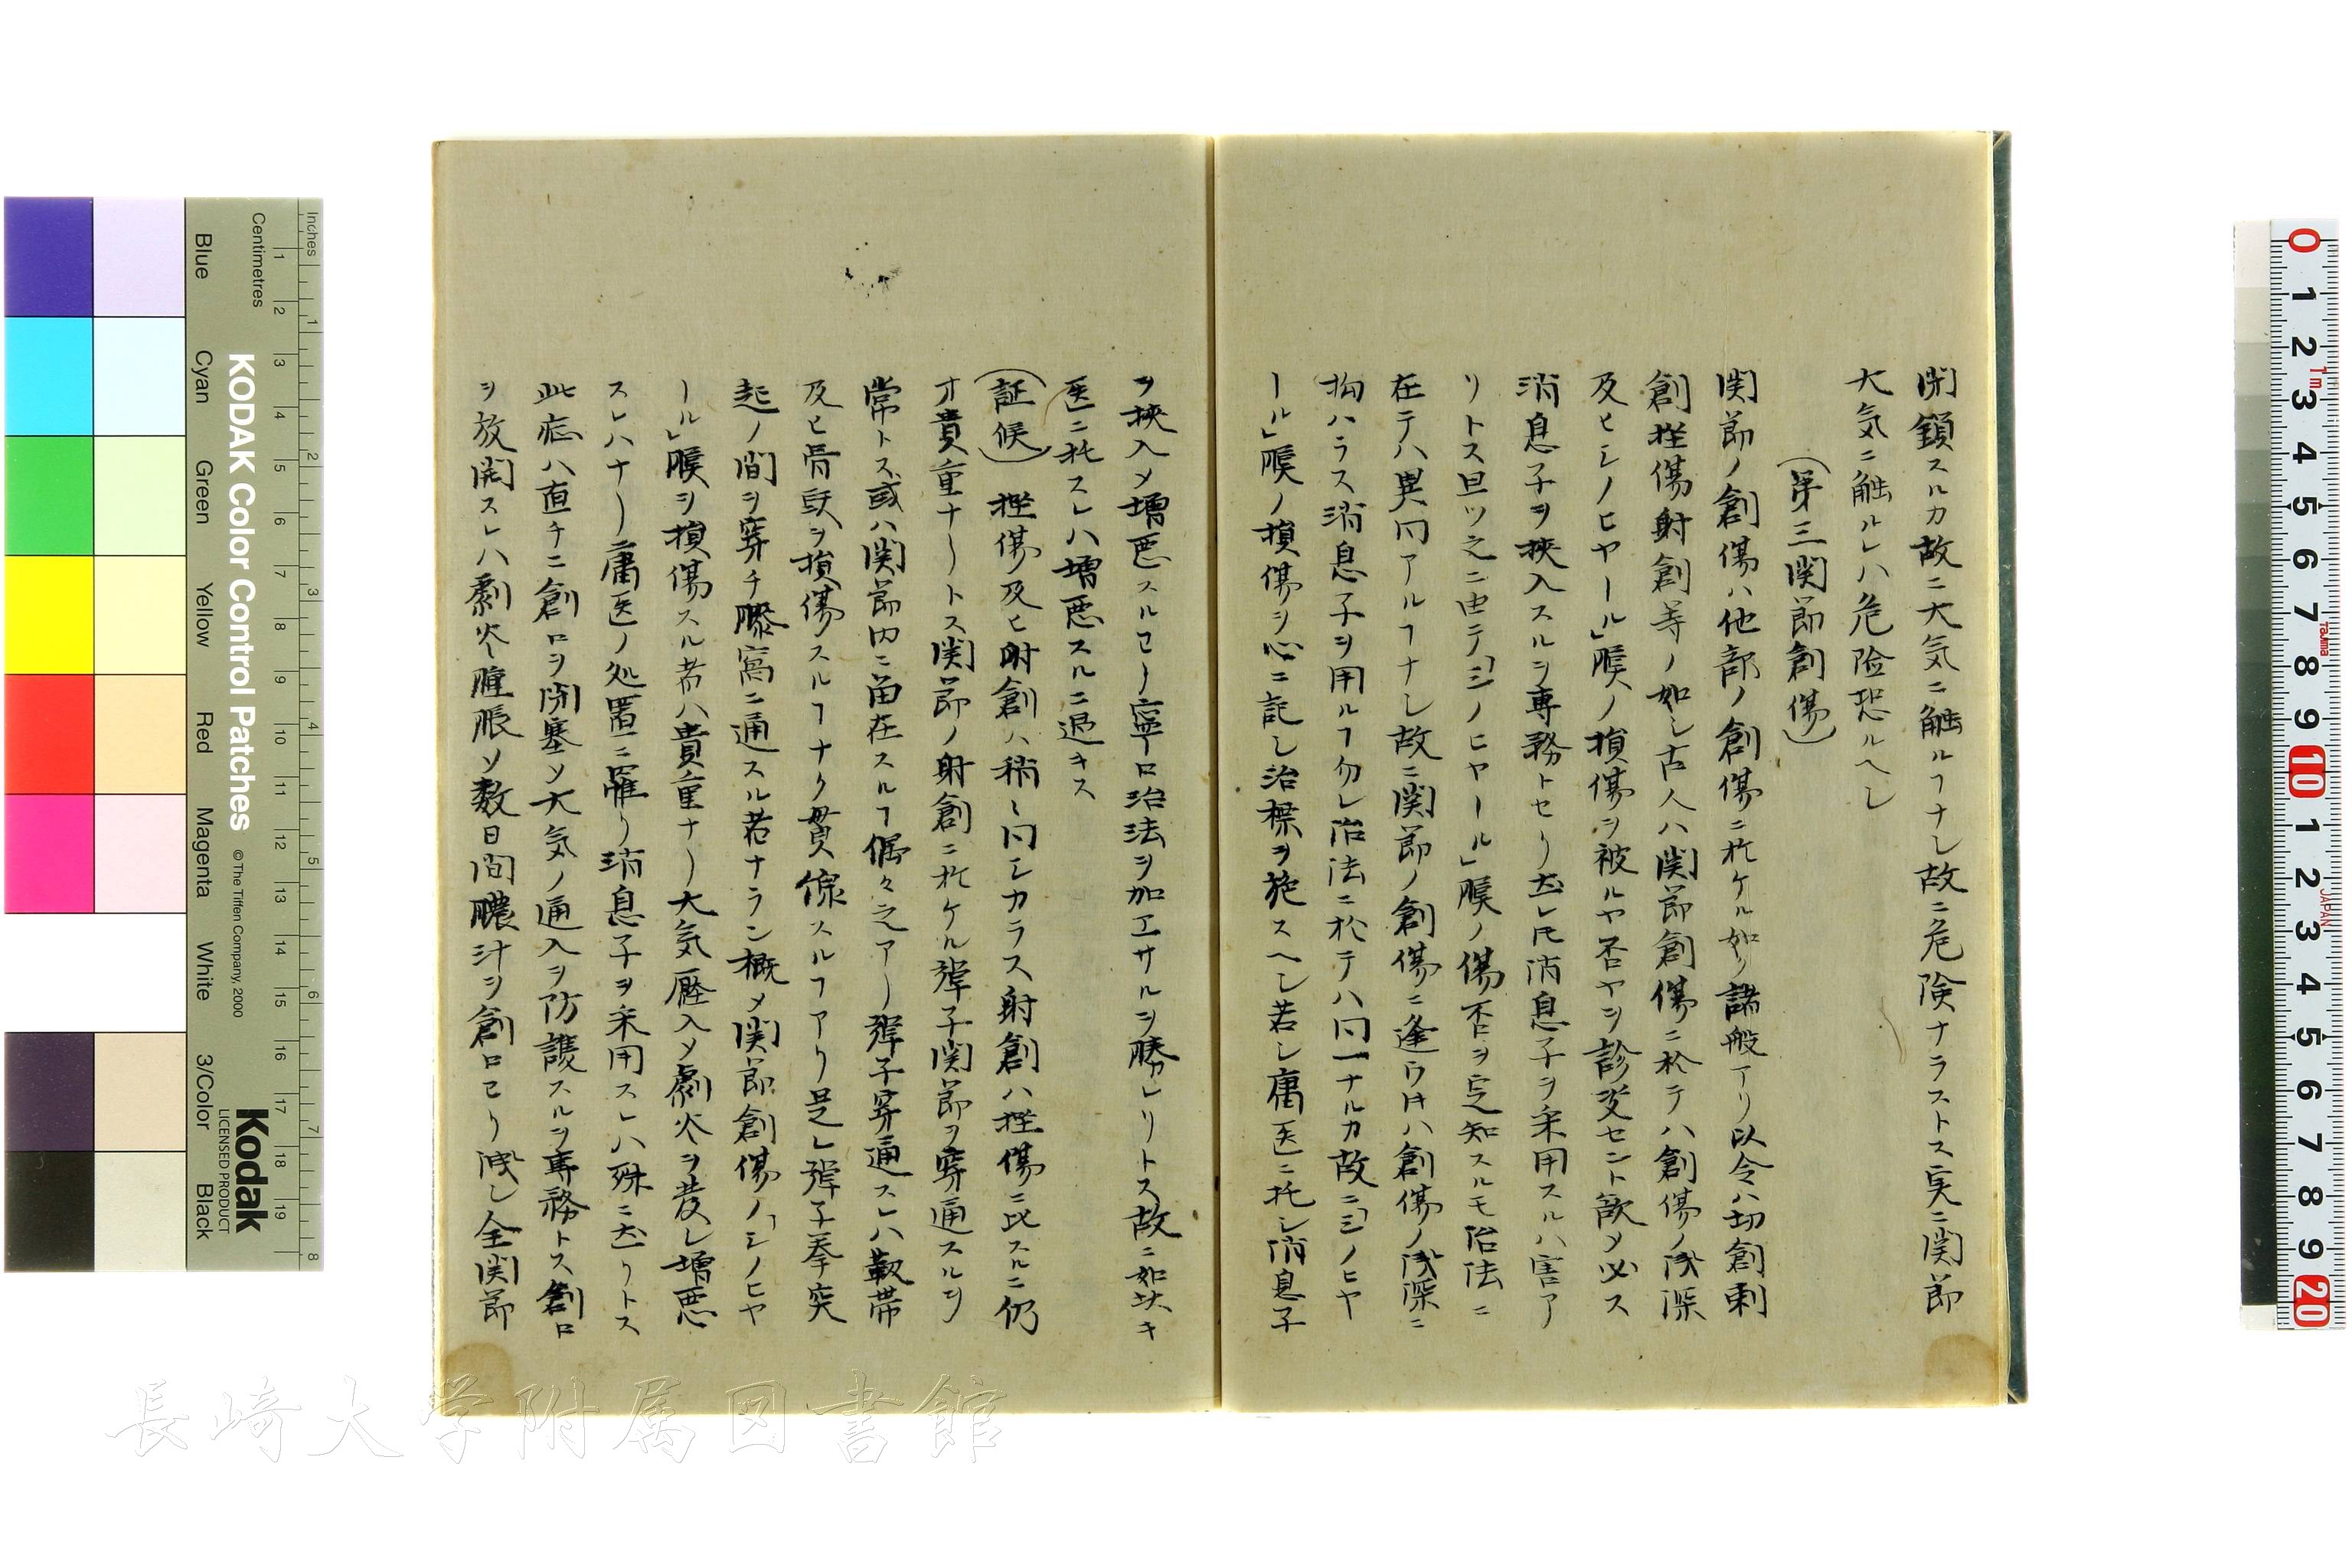 閉鎖スルカ故ニ大気ニ触ルヿナシ故ニ危険ナラストス実ニ関節
大気ニ触ルレハ危险恐ルヘシ
(第三関節創傷)
関節ノ創傷ハ他部ノ創傷ニ於ケル如ク諸般アリ以令ハ切創刺
創挫傷射創等ノ如シ古人ハ関節創傷ニ於テハ創傷ノ浅深
及ヒシノヒヤール」膜ノ損傷ヲ被ルヤ否ヤヲ診定セント欲メ必ス
消息子ヲ挾入スルヲ専務トセリ然レ𪜈消息子ヲ采用スルハ害ア
リトス且ツ之ニ由テ「シノヒヤール」膜ノ傷否ヲ定知スルモ治法ニ
在テハ異同アルヿナシ故ニ関節ノ創傷ニ逢ウ𪜈ハ創傷ノ浅深ニ
拘ハラス消息子ヲ用ルヿ勿レ治法ニ於テハ同一ナルカ故ニ「シノヒヤ
ール」膜ノ損傷ヲ心ニ記シ治療ヲ施スヘシ若シ庸医ニ托シ消息子
ヲ挾入メ増悪スルヨリ寧ロ治法ヲ加エサルヲ勝レリトス故ニ如块キ
医ニ托スレハ増悪スルニ過キス
(証候) 挫傷及ヒ射創ハ稍々同シカラス射創ハ挫傷ニ比スルニ仍
オ貴重ナリトス関節ノ射創ニ於ケル弾子関節ヲ穿通スルヲ
常トス或ハ関節内ニ留在スルヿ偶々之アリ弾子穿通スレハ靱帯
及ヒ骨頭ヲ損傷スルヿナク貫線スルヿアリ是レ弾子拳突
起ノ間ヲ穿チ膝窩ニ通スル者ナラン概メ関節創傷ノ「シノヒヤ
ール」膜ヲ損傷スル者ハ貴重ナリ大気壓入メ劇炎ヲ発シ増悪
スレハナリ庸医ノ処置ニ罹リ消息子ヲ采用スレハ殊ニ然リトス
此症ハ直チニ創口ヲ閉塞ソ大気ノ通入ヲ防護スルヲ専務トス創口
ヲ放開スレハ劇炎腫脹ソ数日間膿汁ヲ創口ヨリ洩シ全関節
KODAK Color Control Patches
© The Tiffen Company, 2000
Kodak
LICENSED PRODUCT
Inches
Centimetres
Blue
Cyan
Green
Yellow
Red
Magenta
White
3/Color
Black
長崎大学附属図書館